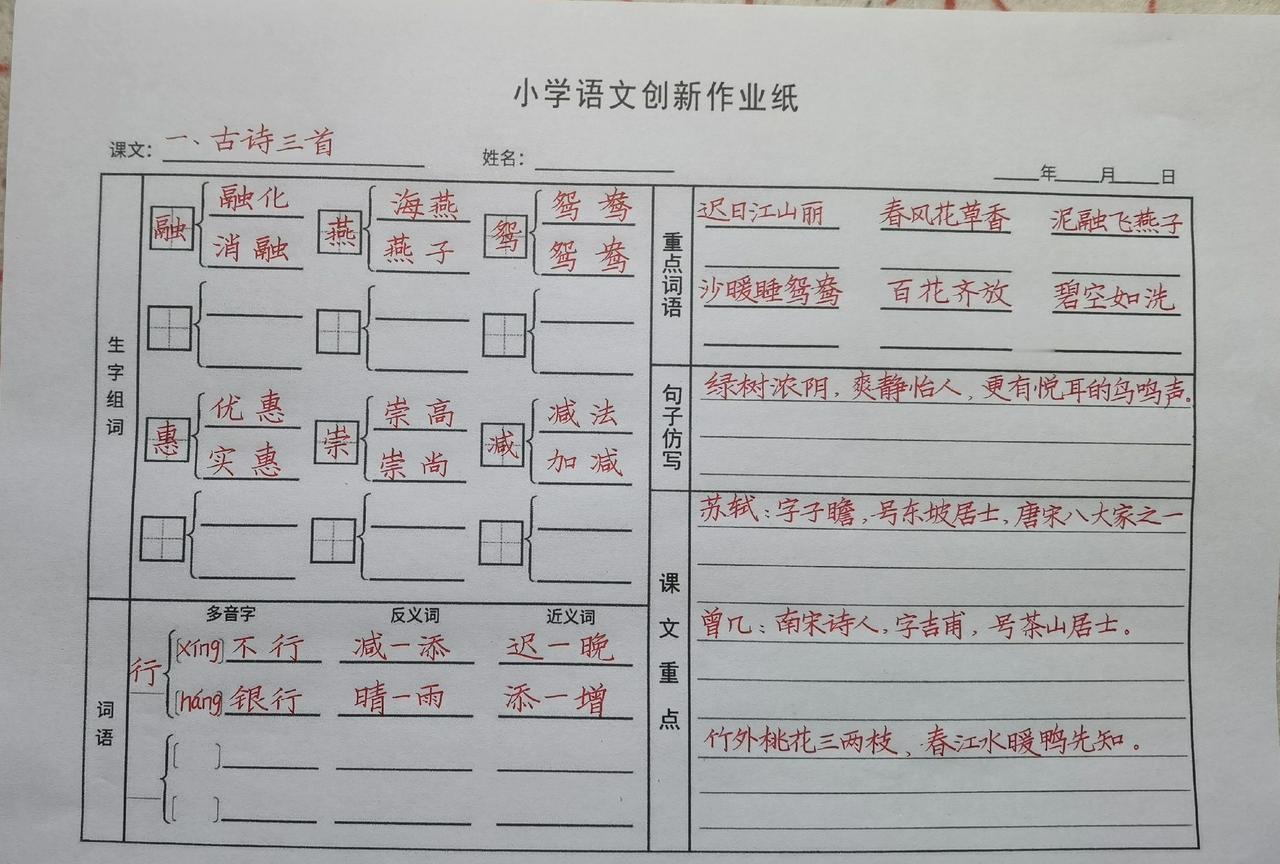 小学语文创新作业纸
课文: 一、古诗三首 姓名: 年 月 日
生字组词
融 融化 燕 海燕 鸳 鸳鸯
消融 燕子 鸳鸯
惠 优惠 崇 崇高 减 减法
实惠 崇尚 加减
词语
多音字 反义词 近义词
行 [xíng] 不行 减一添 迟一晚
[háng] 银行 晴一雨 添一增
[ ]
[ ]
重点词语
迟日江山丽 春风花草香 泥融飞燕子
沙暖睡鸳鸯 百花齐放 碧空如洗
句子仿写
绿树浓阴,爽静怡人,更有悦耳的鸟鸣声。
课文重点
苏轼:字子瞻,号东坡居士,唐宋八大家之一
曾几:南宋诗人,字吉甫,号茶山居士。
竹外桃花三两枝、春江水暖鸭先知。